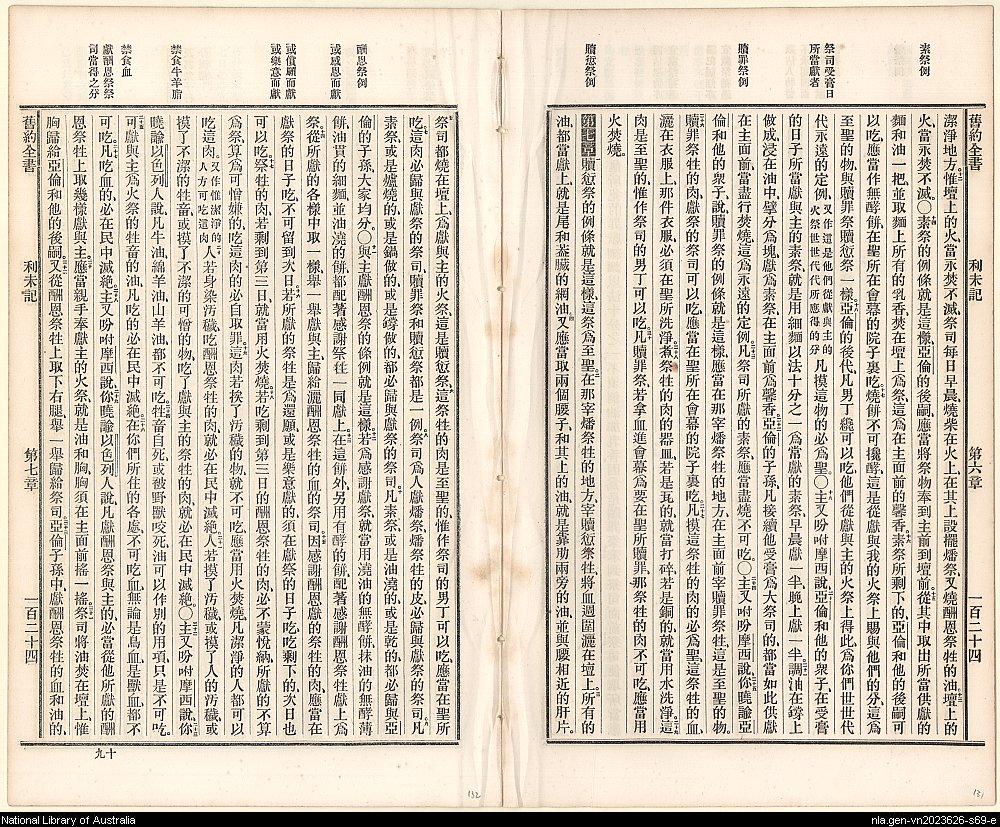 素祭例
祭司受膏日
所當獻者
贖罪祭例
贖愆祭例
舊約全書 利未記 第六章 一百二十四
潔淨地方、惟壇上的火、當永焚不滅、祭司每日早晨、燒柴在火上、在其上設擺燔祭、又燒酬恩祭牲的油、壇上的
火、當永焚不滅。〇素祭的例條就是這樣、亞倫的後嗣、應當將祭物奉到主前、到壇前、從其中取出所當供獻的
麵和油一把、並取麵上所有的乳香、焚在壇上爲祭、這爲在主面前的馨香、素祭所剩下的、亞倫和他的後嗣可
以吃、應當作無酵餅、在聖所在會幕的院子裏吃、燒餅不可攙酵、這是從獻與我的火祭上賜與他們的分、這爲
至聖的物、與贖罪祭贖愆祭一樣、亞倫的後代、凡男丁纔可以吃、他們從獻與主的火祭上得此、爲你們世世代
代永遠的定例、又作這是他們從獻與主的火祭世世代代所應得的分凡摸這物的必爲聖。〇主又吩咐摩西說、亞倫和他的衆子、在受膏
的日子所當獻與主的素祭、就是用細麵以法十分之一、爲當獻的素祭、早晨獻一半、晚上獻一半、調油在鐣上
做成、浸在油中、擘分爲塊、獻爲素祭、在主面前爲馨香、亞倫的子孫、凡接續他受膏爲大祭司的、都當如此供獻
在主面前、當盡行焚燒、這爲永遠的定例、凡祭司所獻的素祭、應當盡燒不可吃。〇主又吩咐摩西說、你曉諭亞
倫和他的衆子說、贖罪祭的例條就是這樣、應當在那宰燔祭牲的地方、在主面前宰贖罪祭牲、這是至聖的物、
贖罪祭牲的肉、獻祭的祭司可以吃、應當在聖所在會幕的院子裏吃、凡摸這祭牲的肉的必爲聖、這祭牲的血、
灑在衣服上、那件衣服、必須在聖所洗淨、煮祭牲的肉的器皿、若是瓦的、就當打碎、若是銅的、就當用水洗淨、這
肉是至聖的、惟作祭司的男丁可以吃、凡贖罪祭、若拿血進會幕爲要在聖所贖罪、那祭牲的肉不可吃、應當用
火焚燒。
第七章贖愆祭的例條就是這樣、這祭爲至聖、在那宰燔祭牲的地方、宰贖愆祭牲、將血週圍灑在壇上、所有的
油都當獻上、就是尾和蓋臟的網油、又應當取兩個腰子和其上的油、就是靠肋兩旁的油、並與腰相近的肝片。
酬恩祭例
或感恩而獻
或償願而獻
或樂意而獻
禁食牛羊脂
禁食血
獻酬恩祭祭
司當得之分
祭司都燒在壇上、爲獻與主的火祭、這是贖愆祭、這祭牲的肉是至聖的、惟作祭司的男丁可以吃、應當在聖所
吃、這肉必歸與獻祭的祭司、贖罪祭和贖愆祭都是一例、祭司爲人獻燔祭、燔祭牲的皮、必歸與獻祭的祭司、凡
素祭、或是爐燒的、或是鍋做的、或是鐣做的、都必歸與獻祭的祭司、凡素祭、或是油澆的、或是乾的、都必歸與亞
倫的子孫、大家均分。〇獻與主獻酬恩祭的條例就是這樣、若爲感謝獻祭、就當用澆油的無酵餅、抹油的無酵薄
餅、油貫的細麵、並油澆的餅、都配著感謝祭牲一同獻上、在這餅外、另用有酵的餅、配著感謝酬恩祭牲獻上爲
祭、從所獻的各樣中取一樣、舉一舉獻與主、歸給灑酬恩祭牲的血的祭司、因感謝酬恩獻的祭牲的肉、應當在
獻祭的日子吃、不可留到次日、若所獻的祭牲、是爲還願、或是樂意獻的、須在獻祭的日子吃、吃剩下的、次日也
可以吃、祭牲的肉、若剩到第三日、就當用火焚燒、若吃剩到第三日的酬恩祭牲的肉、必不蒙悅納、所獻的不算
爲祭、算爲可憎嫌的、吃這肉的必自取罪、這肉若挨了汚穢的物、就不可吃、應當用火焚燒、凡潔淨的人都可以
吃這肉、又作惟潔淨的人方可吃這肉人若身染汚穢、吃酬恩祭牲的肉、就必在民中滅絕、人若摸了汚穢、或摸了人的汚穢、或
摸了不潔的牲畜、或摸了不潔的可憎的物、吃了獻與主的祭牲的肉、就必在民中滅絕。〇主又吩咐摩西說、你
曉諭以色列人說、凡牛油、綿羊油、山羊油、都不可吃、牲畜自死、或被野獸咬死、油可以作別的用項、只是不可吃、
可獻與主爲火祭的牲畜的油、凡吃的必在民中滅絕、在你們所住的各處、不可吃血、無論是鳥血是獸血都不
可吃、凡吃血的、必在民中滅絕。主又吩咐摩西說、你曉諭以色列人說、凡獻酬恩祭與主的、必當從他所獻的酬
恩祭牲上、取幾樣獻與主、應當親手奉獻主的火祭、就是油和胸、胸須在主面前搖一搖、祭司將油焚在壇上、惟
胸歸給亞倫和他的後嗣、又從酬恩祭牲上取下右腿、舉一舉歸給祭司、亞倫子孫中、獻酬恩祭牲的血和油的、
舊約全書 利未記 第七章 一百二十四
十九
132
131
National Library of Australia
nla.gen-vn2023626-s69-e